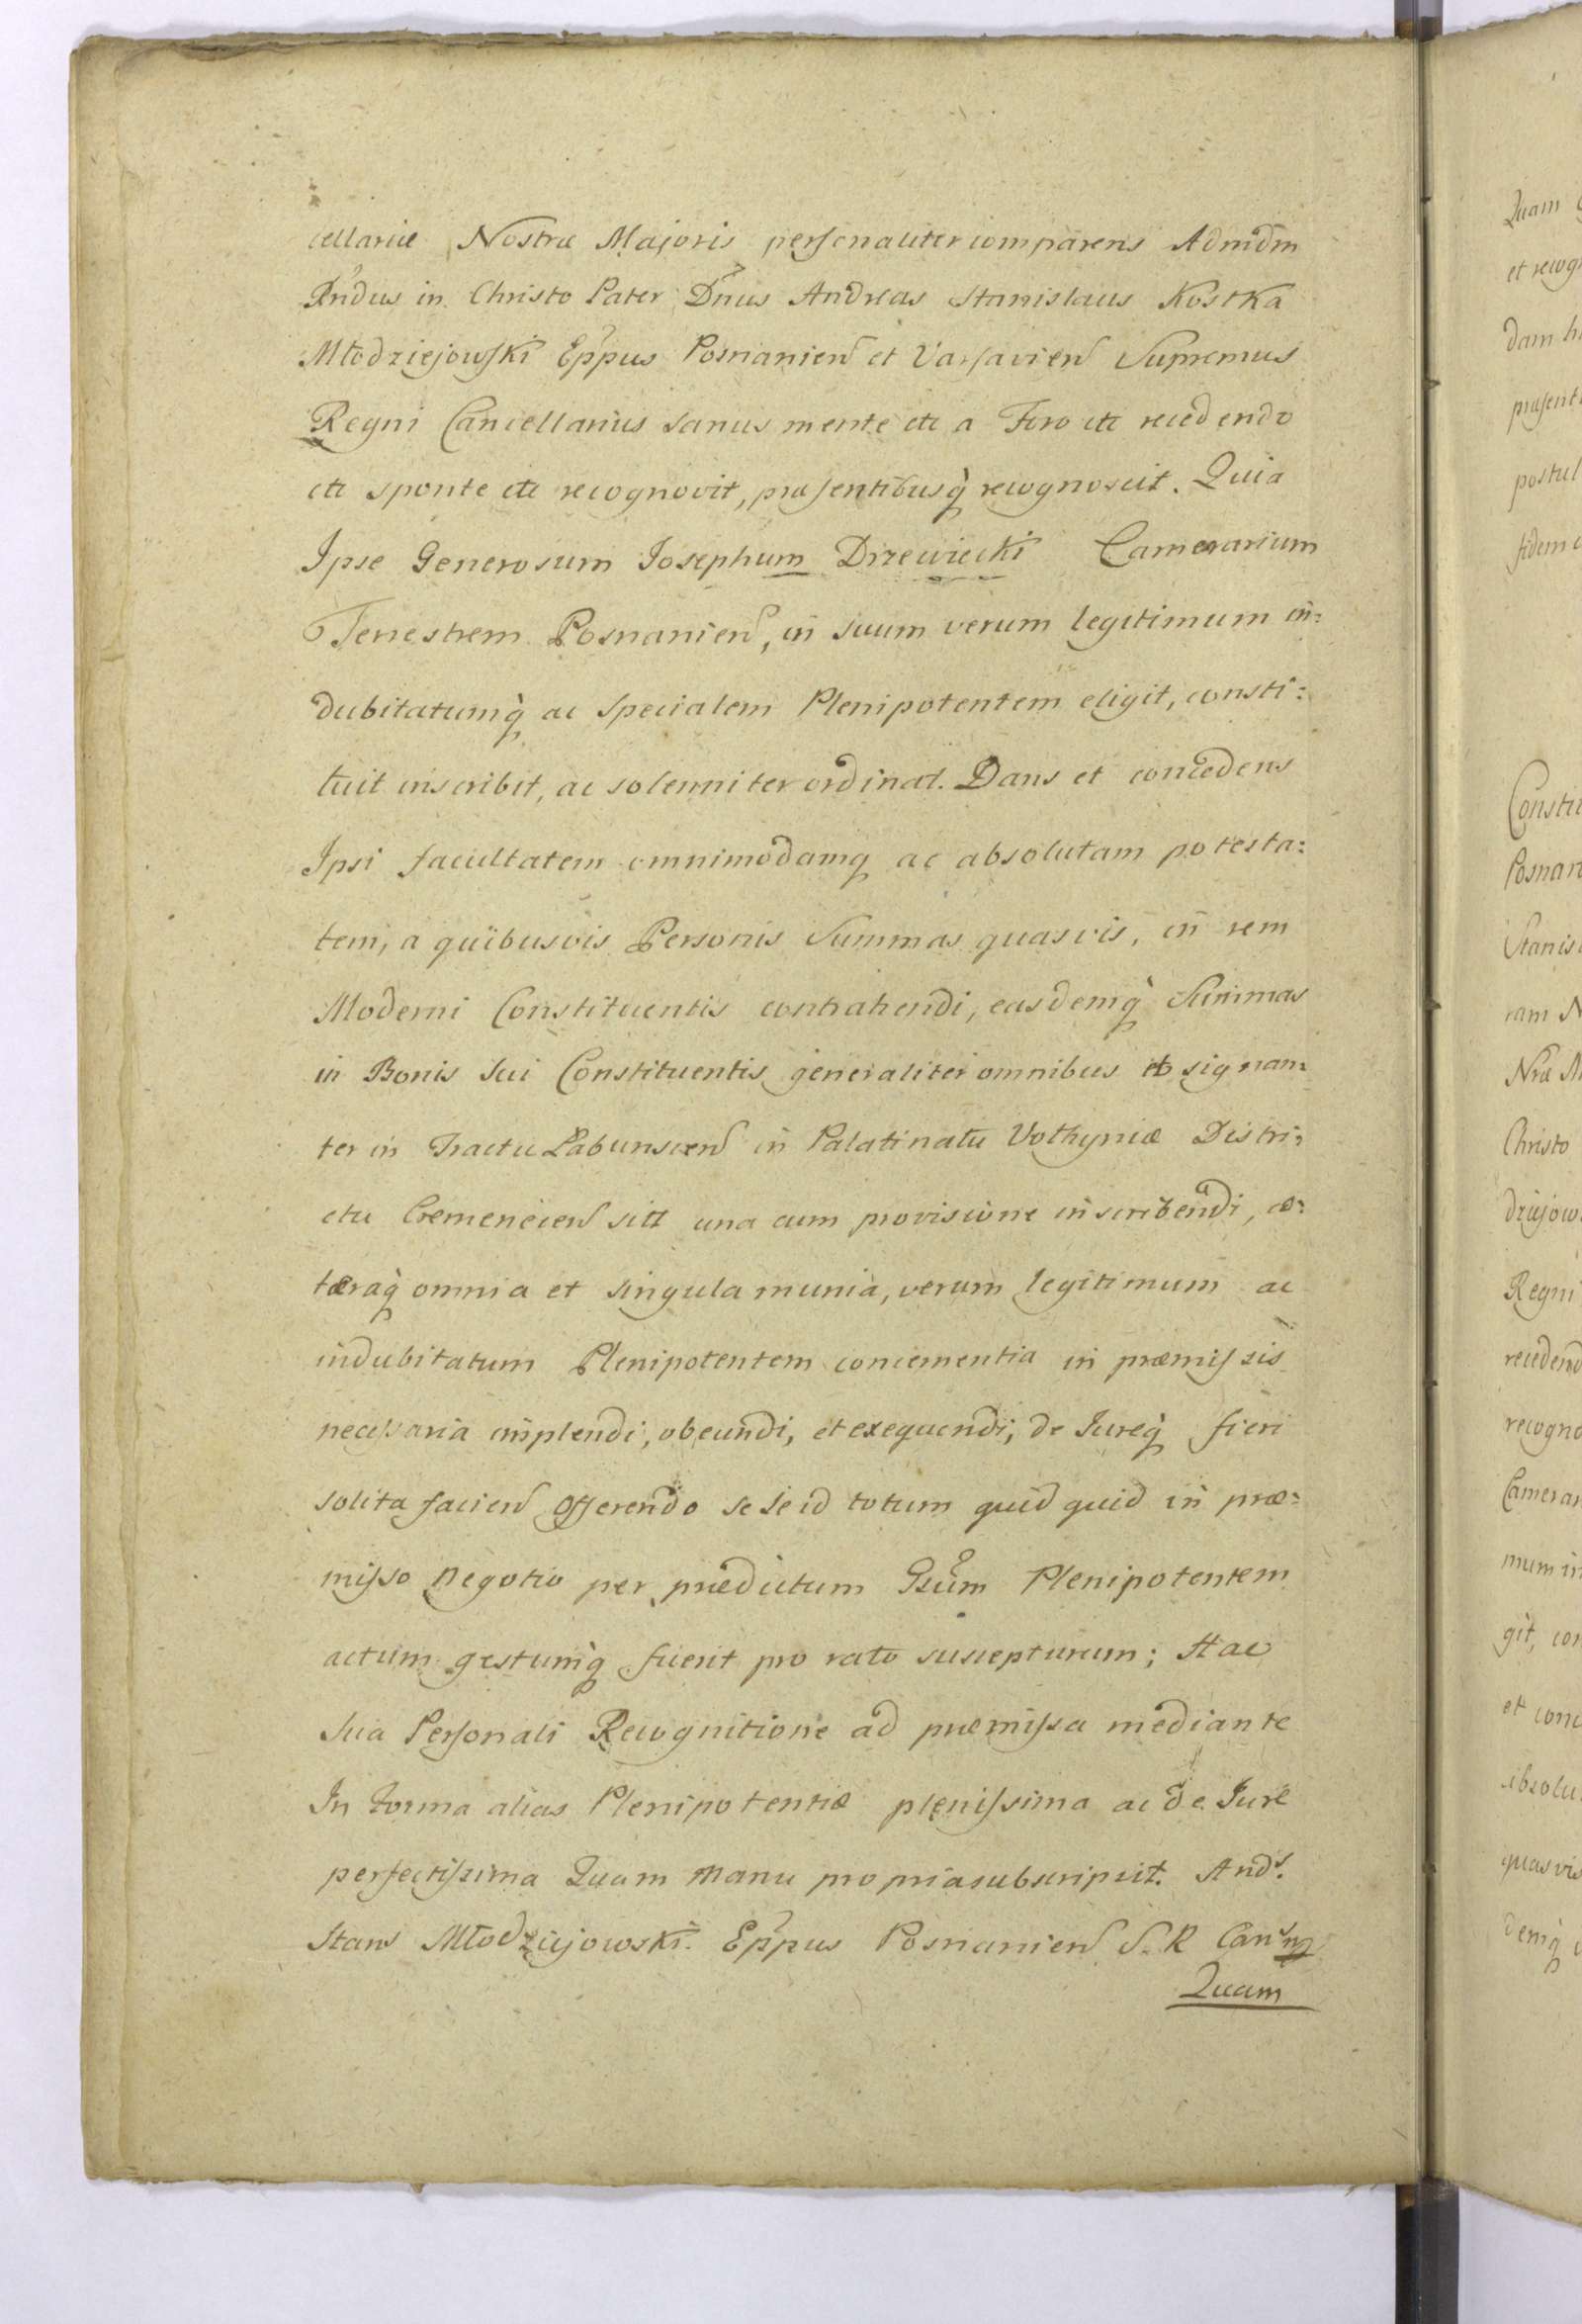 cellariæ Nostræ Majoris personaliter comparens Admdm
Rndus in Christo Pater Dnus Andreas Stanislaus Kostka
Młodziejowski Eppus Posnanien et Varsavien Supremus
Regni Cancellarius sanus mente etc a Foro etc recedendo
etc sponte etc recognovit, præsentibusq̀ recognoscit. Quia
Ipse Generosum Josephum Drzewiecki Camerarium
Terrestrem Posnanien, in suum verum legitimum in=
dubitatumq̀ ac specialem Plenipotentem eligit, consti=
tuit inscribit, ac solenniter ordinat. Dans et concedens
Ipsi facultatem omnimodamq ac absolutam potesta=
tem, a quibusvis Personis Summas quasvis, in rem
Moderni Constituentis contrahendi, easdemq̀ Summas
in Bonis sui Constituentis generaliter omnibus et signan=
ter in Tractu Łabunscien in Palatinatu Volhyniæ Distri=
ctu Cremenecien sitt una cum provisione inscribendi, cæ=
tæraq̀ omnia et singula munia, verum legitimum ac
indubitatum Plenipotentem concernentia in præmissis
necessaria implendi, obeundi, et exequendi, de Jureq̀ fieri
solita facien Offerendo se se id totum quid quid in præ=
misso negotio per prædictum Gsum Plenipotentem
actum gestumq̀ fuerit pro rato suscepturum; Hac
sua Personali Recognitione ad præmissa mediante
In Forma alias Plenipotentiæ plenissima ac de Jure
perfectissima Quam manu propria subscripsit. Ands.
Stans Młodziejowski. Eppus Posnanien S. R Cansmp
Quam
Quam
et recog
dam h
præsent
postul
fidem
Constit
Posnan
Stanis
ram N
Nræ M
Christo
dziejow
Regni
recedend
recogno
Camerar
mum in
git, con
et conc
absolu
quasvis
demq̀